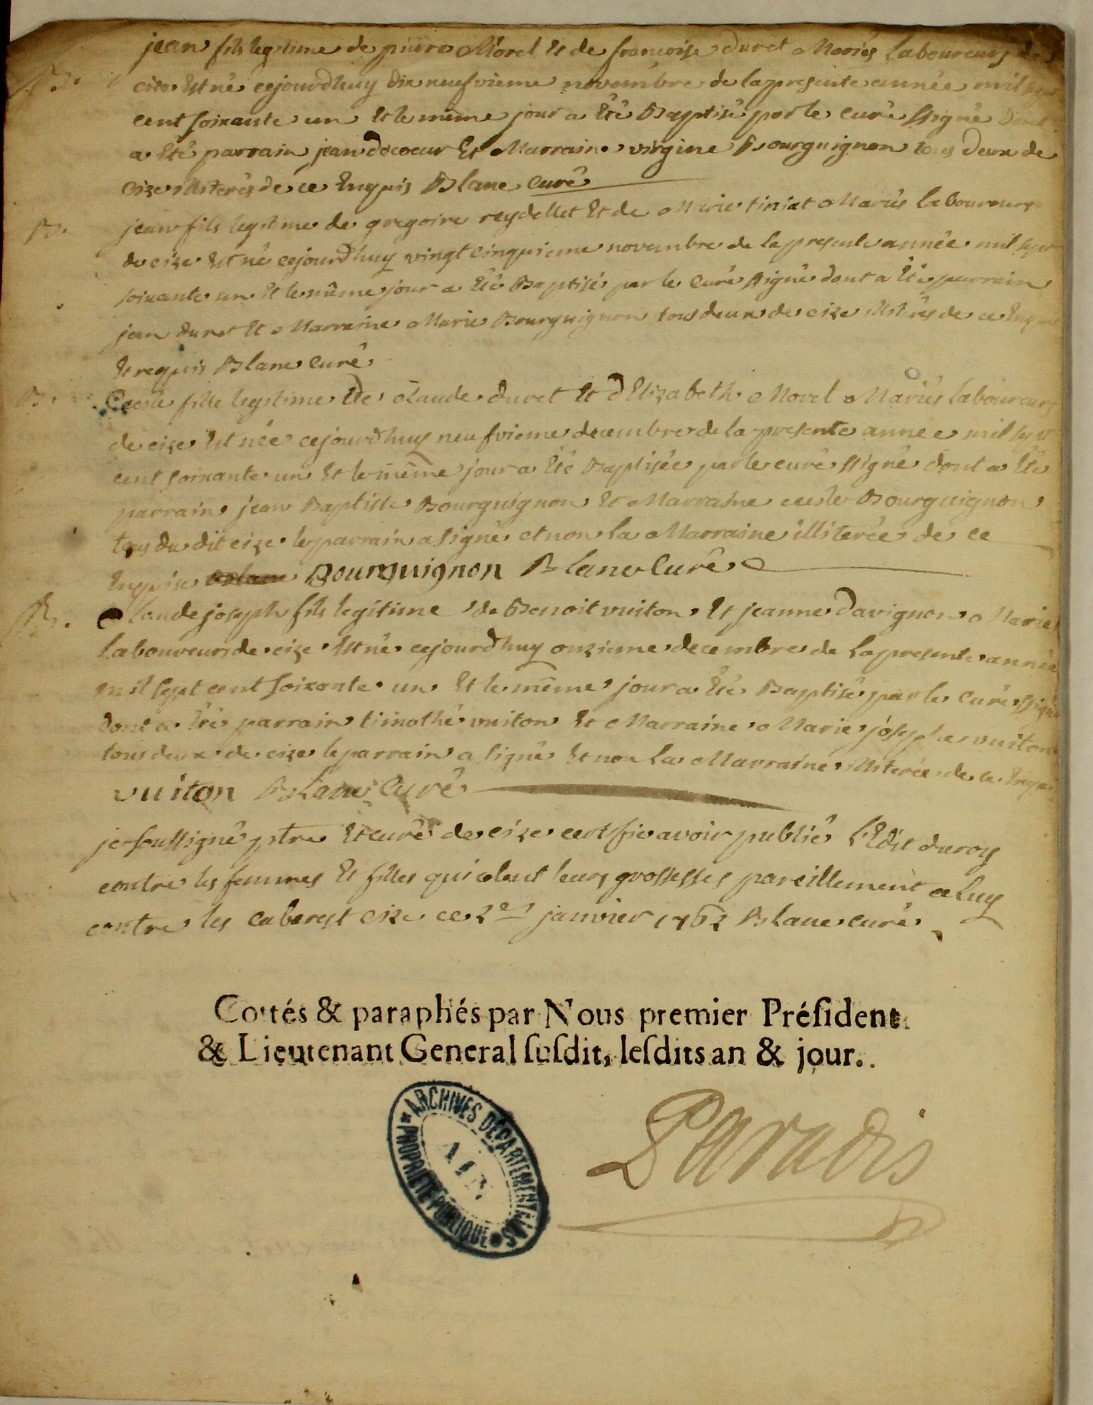 B.
jean fils legitime de pierre Morel Et de francoise duret Mariés laboureurs de
cize Est né cejourdhuy dix neufvieme novembre de la presente année mil sept
cent soixante un Et le même jour a Eté Baptisé par le curé ssigné dont
a Eté parrain jean decoeur Et Marraine virgine Bourguignon tous deux de
cize illiterés de ce Enquis Blanc curé
B.
jean fils legitime de gregoire reydellet Et de Marie tiniat Mariés laboureurs
de cize Est né cejourdhuy vingt cinquieme novembre de la presente année mil sept
soixante un Et le même jour a Eté Baptisé par le curé ssigné dont a Eté parrain
jean duret Et Marraine Marie Bourguignon tous deux de cize illiterés de ce Enquis
Et requis Blanc curé
B.
Cecile fille legitime de claude duret Et dElizabeth Morel Mariés laboureurs
de cize Est née cejourdhuy neufvieme decembre de la presente année mil sept
cent soixante un Et le même jour a Eté Baptisée par le curé ssigné dont a Eté
parrain jean Baptiste Bourguignon Et Marraine cecile Bourguignon
tous du dit cize le parrain a signé et non la Marraine illiterée de ce
Enquise Bourguignon Blanc Curé
B.
Claude joseph fils legitime de Benoit vuiton Et jeanne davignon Marié
laboureurs de cize Est né cejourdhuy onzieme decembre de la presente année
mil sept cent soixante un Et le même jour a Eté Baptisé par le curé ssigné
dont a Eté parrain timothé vuiton Et Marraine Marie josephe vuiton
tous deux de cize le parrain a signé Et non la Marraine illiterée de ce Enquis
vuiton Blanc Curé
je soussigné ptre Et curé de cize certifie avoir publié l'Edit du roy
contre les femmes Et filles qui celent leurs grossesses pareillement celuy
contre les cabarest cize ce 2e janvier 1762 Blanc curé
Cottés & paraphés par Nous premier Préſident
& Lieutenant General ſuſdit, leſdits an & jour.
Paradis
ARCHIVES DÉPARTEMENTALES
AIN
PROPRIÉTÉ PUBLIQUE